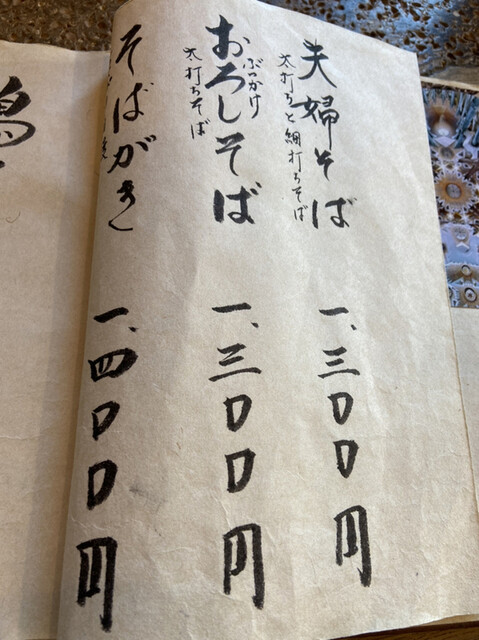 夫婦そば
太打ちと細打ちそば
一、三〇〇円
ぶっかけ
おろしそば
太打ちそば
一、三〇〇円
そばがき
一、四〇〇円